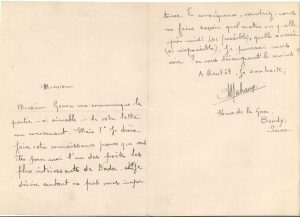 Monsieur
Monsieur me communique la
partie si aimable de votre lettre
me concernant. Mais 1° Je désire
faire votre connaissance parce que vous
êtes pour moi l'un des poètes les
plus intéressants de Dada, 2° Je
désire surtout ne pas vous impor-
tuner. En conséquence, voudriez-vous
me faire savoir quel matin ou quelle
après-midi (si possible), quelle soirée
(si impossible), je pourrai vous
voir en vous dérangeant le moins
A bientôt, je souhaite,
de la Gare,
Bondy
Seine